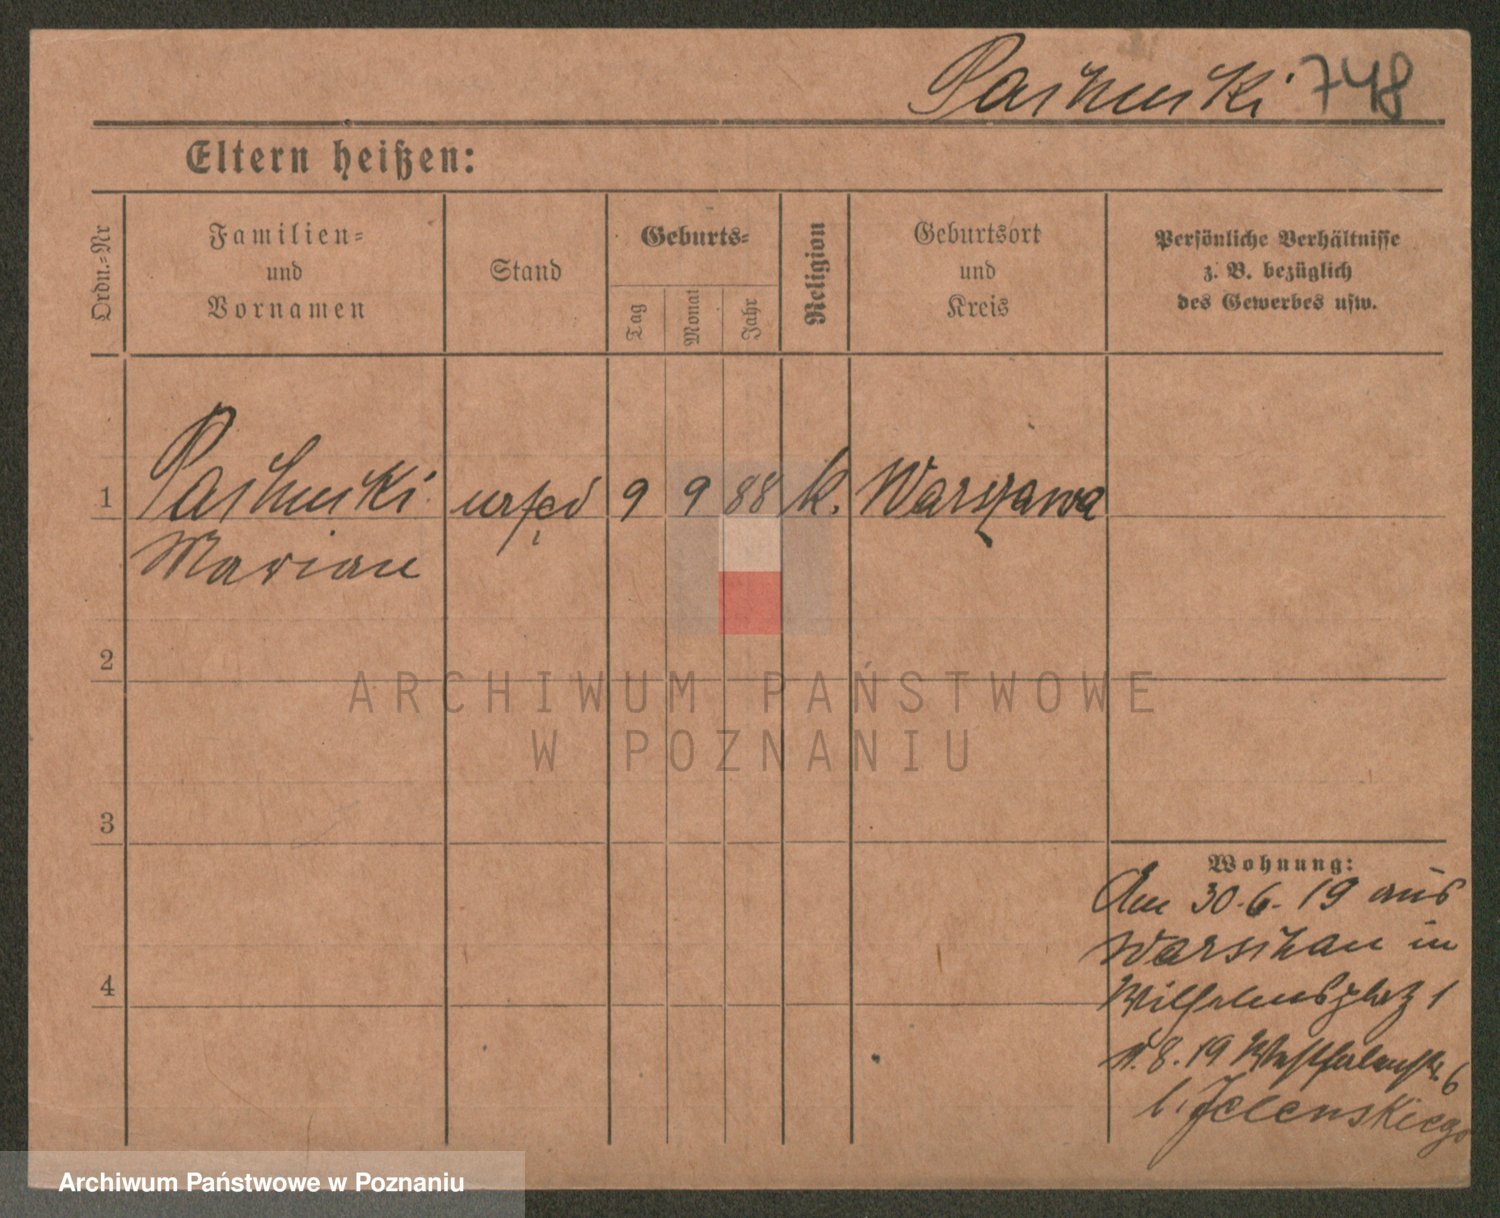 748
Eltern heißen:
Ordn.-Nr
Familien-
und
Vornamen
Stand
Geburts-
Tag
Monat
Jahr
Religion
Geburtsort
und
Kreis
Persönliche Verhältnisse
z. B. bezüglich
des Gewerbes usw.
1
9 9 88 k. Warszawa
Marian
2
ARCHIWUM PAŃSTWOWE
W POZNANIU
3
4
Wohnung:
Am 30.6.19 aus
Warschau in
Wilhelmsplatz 1
8.19 Westfalenstr. 6
b. Jelenskiego
Archiwum Państwowe w Poznaniu